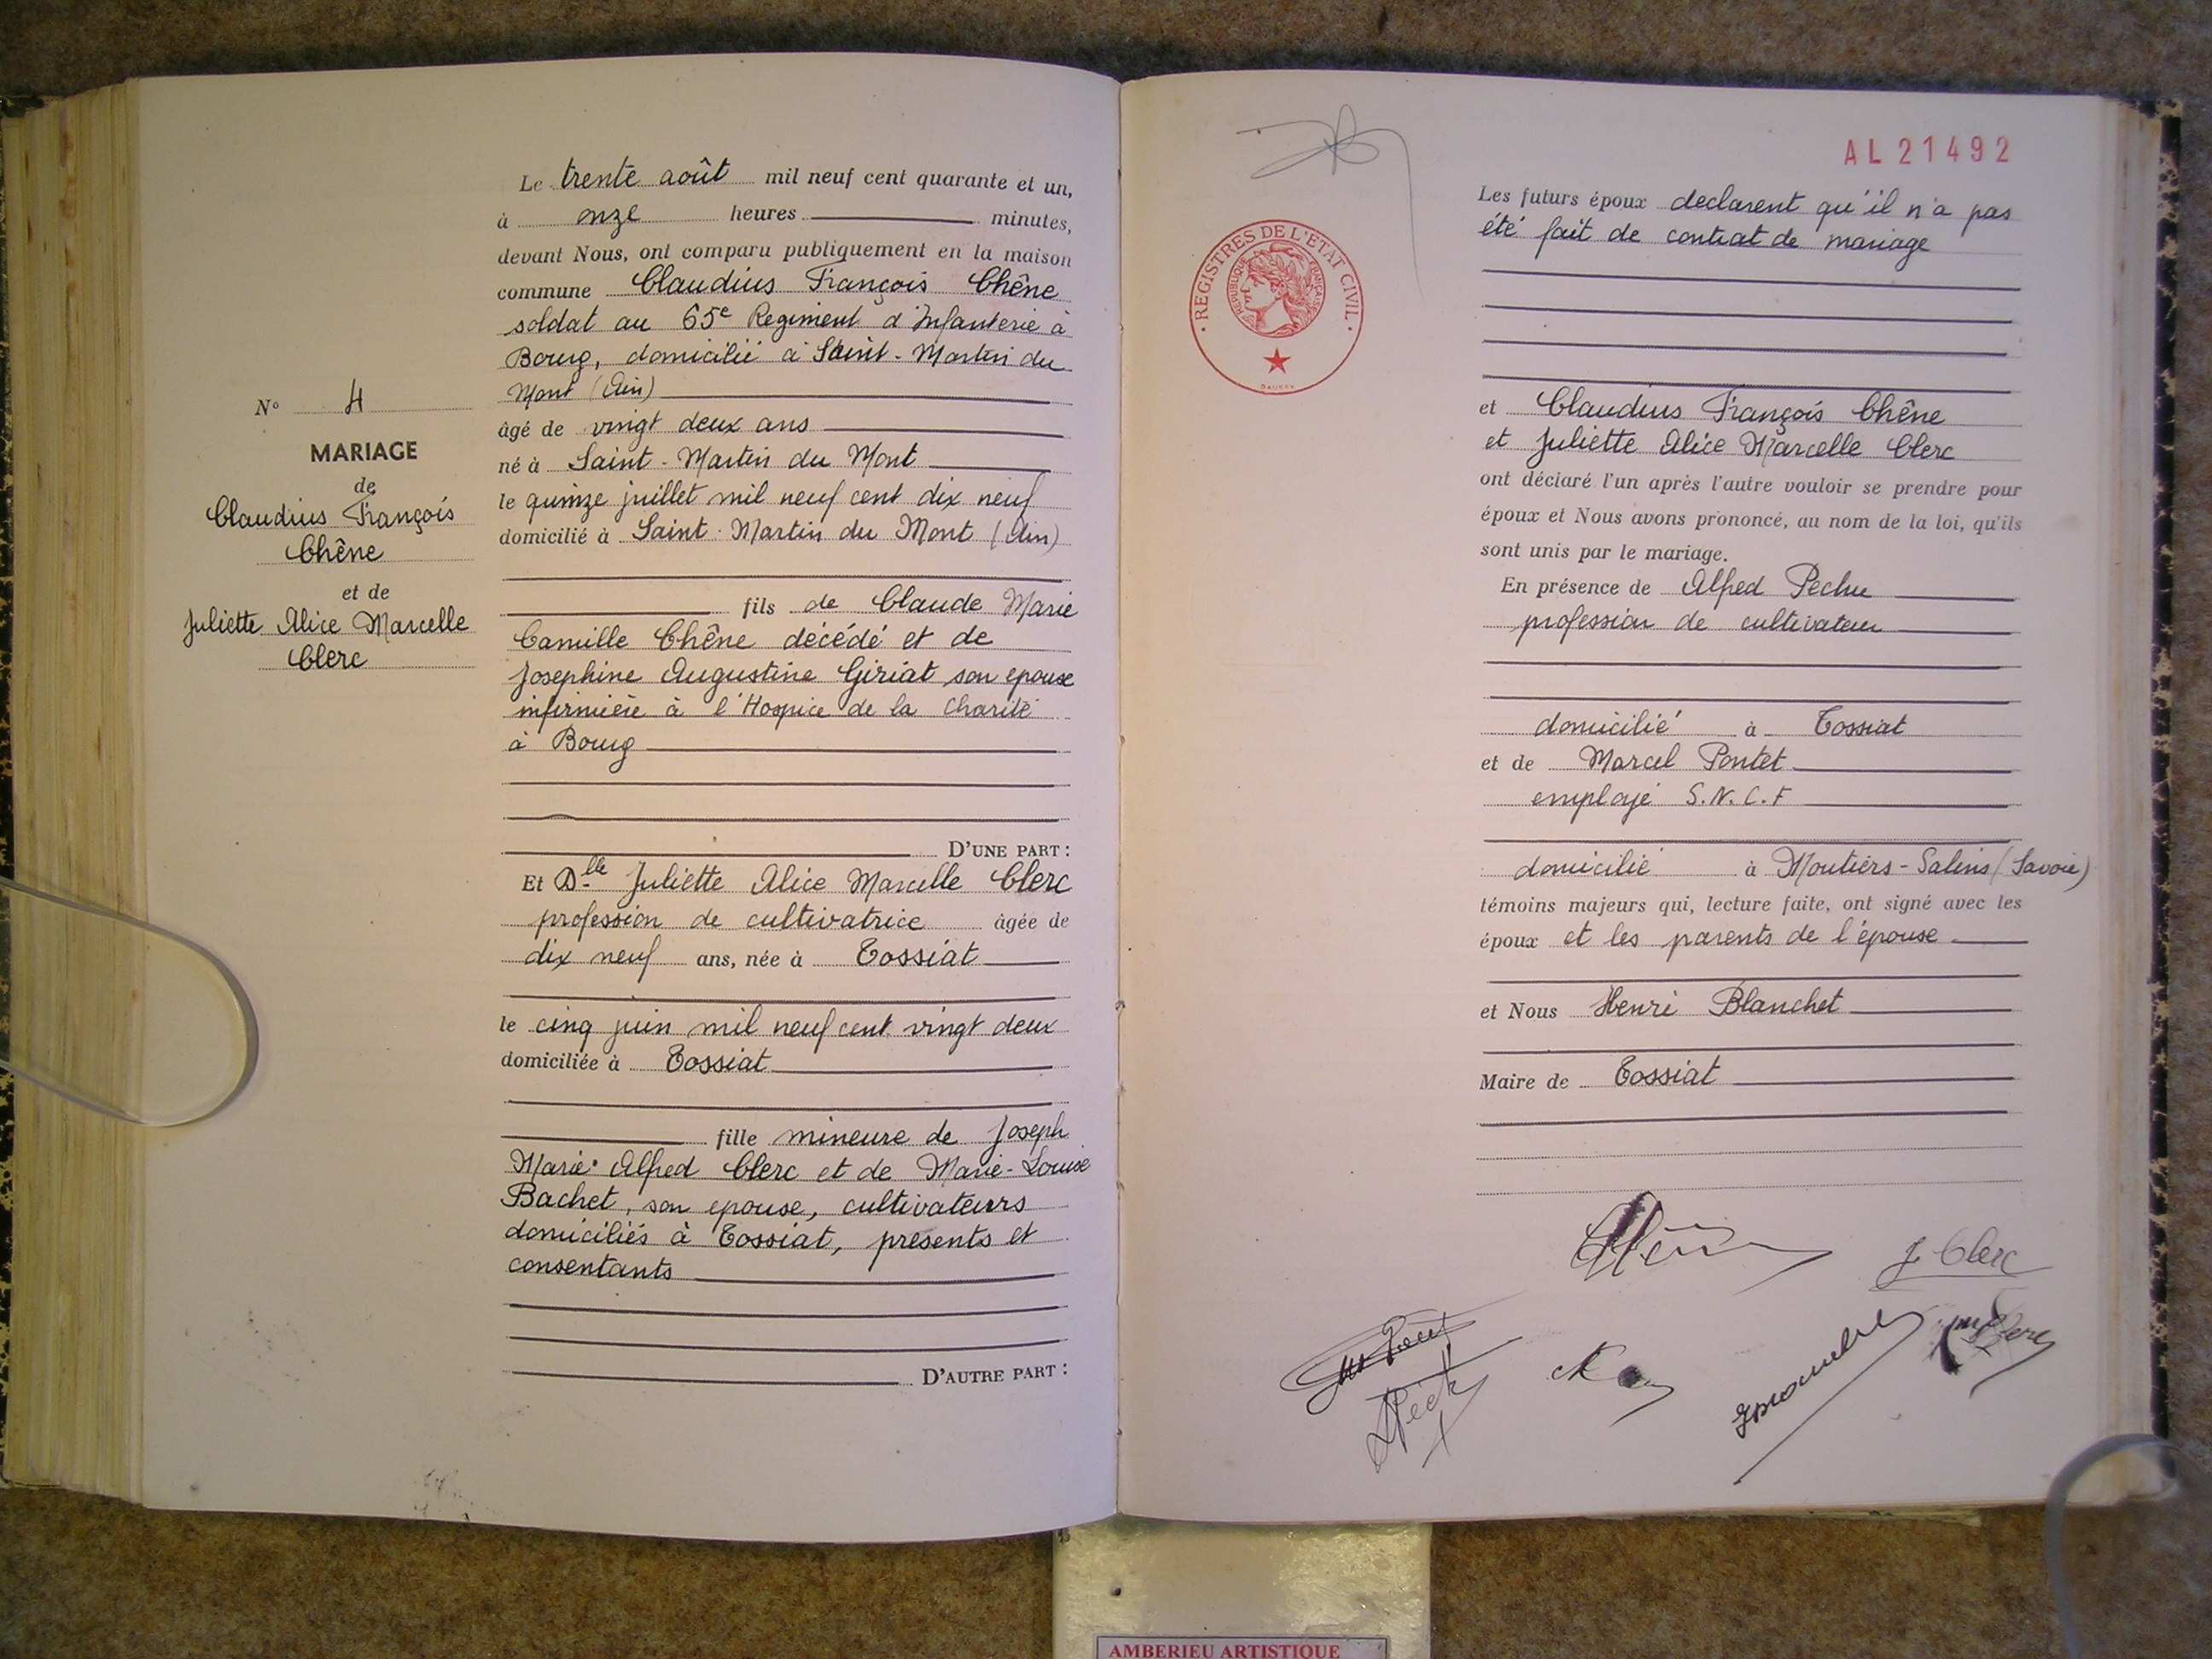 Le trente août mil neuf cent quarante et un,
à onze heures minutes,
devant Nous, ont comparu publiquement en la maison
commune Claudius François Chêne
soldat au 65e Regiment d'Infanterie à
Bourg, domicilié à Saint-Martin du
Mont (Ain)
âgé de vingt deux ans
né à Saint-Martin du Mont
le quinze juillet mil neuf cent dix neuf
domicilié à Saint-Martin du Mont (Ain)
fils de Claude Marie
Camille Chêne décédé et de
Josephine Augustine Giriat son epouse
infirmière à l'Hospice de la Charité
à Bourg
D'UNE PART :
Et Dlle Juliette Alice Marcelle Clerc
profession de cultivatrice âgée de
dix neuf ans, née à Tossiat
le cinq juin mil neuf cent vingt deux
domiciliée à Tossiat
fille mineure de Joseph
Marie Alfred Clerc et de Marie-Louise
Bachet, son epouse, cultivateurs
domiciliés à Tossiat, présents et
consentants
D'AUTRE PART :
No 4
MARIAGE
de
Claudius François
Chêne
et de
Juliette Alice Marcelle
Clerc
AL 21492
REGISTRES DE L'ETAT CIVIL
REPUBLIQUE FRANÇAISE
Les futurs époux declarent qu'il n'a pas
été fait de contrat de mariage
et Claudius François Chêne
et Juliette Alice Marcelle Clerc
ont déclaré l'un après l'autre vouloir se prendre pour
époux et Nous avons prononcé, au nom de la loi, qu'ils
sont unis par le mariage.
En présence de Alfred Pechu
profession de cultivateur
domicilié à Tossiat
et de Marcel Pontet
employé S.N.C.F
domicilié à Moutiers-Salins (Savoie)
témoins majeurs qui, lecture faite, ont signé avec les
époux et les parents de l'épouse
et Nous Henri Blanchet
Maire de Tossiat
J Clerc
AMBERIEU ARTISTIQUE